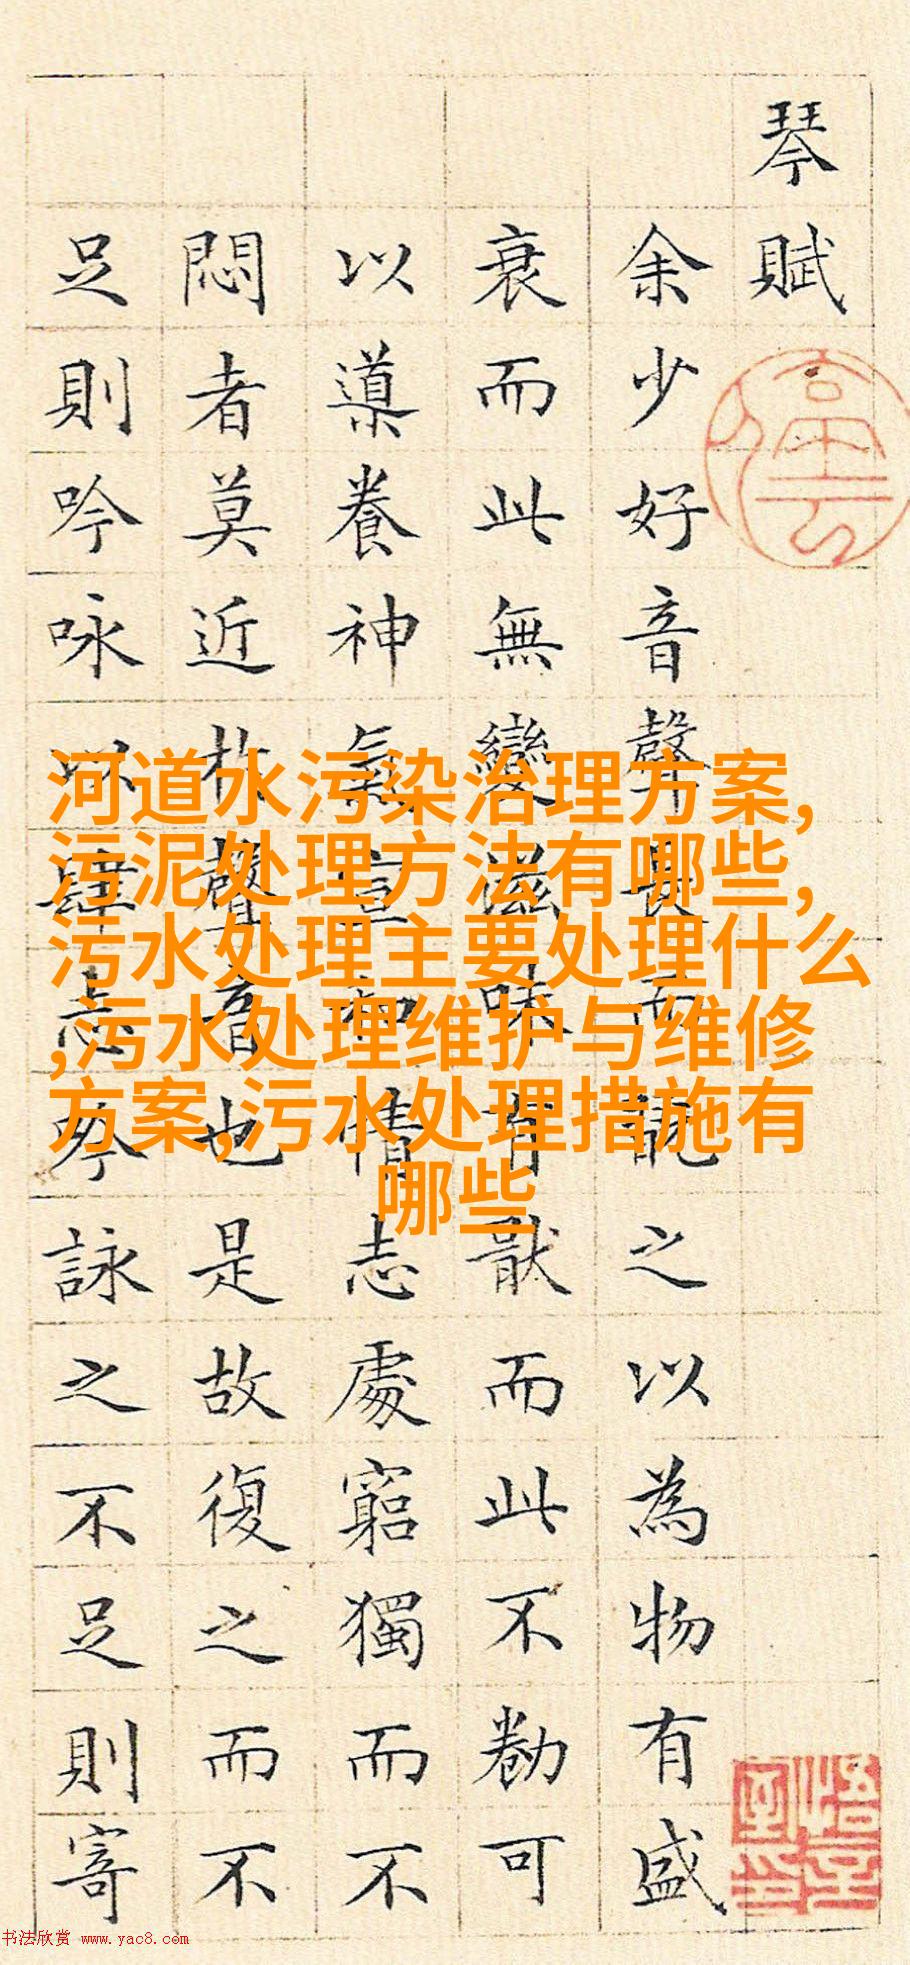 琴賦
余少好音聲長而翫之以為物有盛
衰而此無變滋味有猒而此不勌可
以導養神氣宣和情志處窮獨而不
悶者莫近於聲音也是故復之而不
足則吟咏以肆志吟詠之不足則寄
河道水污染治理方案,
污泥处理方法有哪些,
污水处理主要处理什么
,污水处理维护与维修
方案,污水处理措施有
哪些
书法欣赏 www.yac8.com